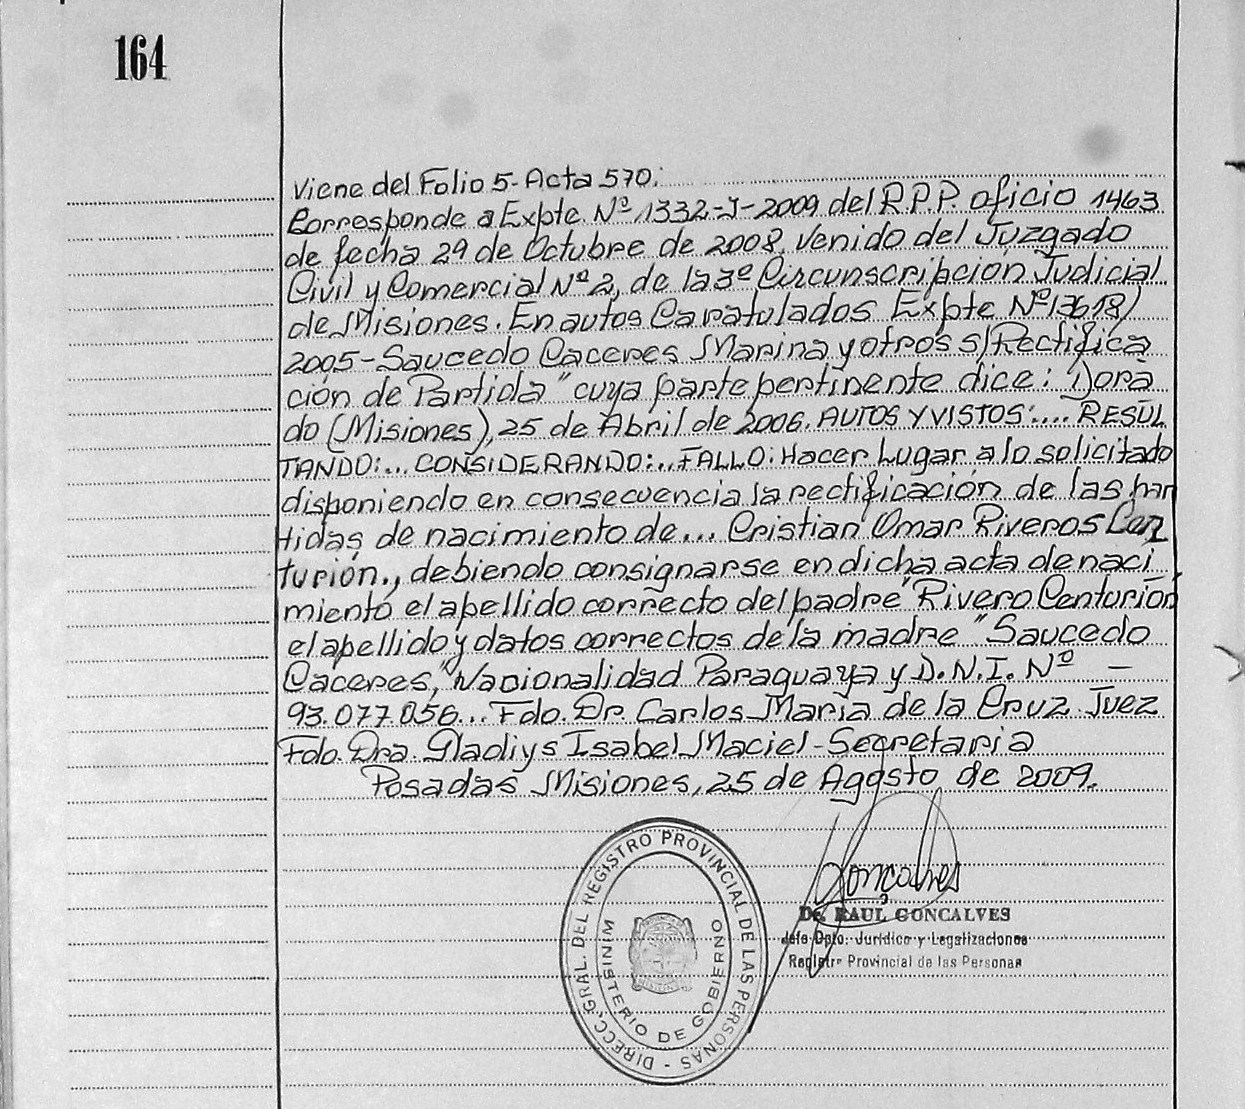 164
Viene del Folio 5-Acta 570:
Corresponde a Expte. Nº 1332-J-2009 del R.P.P. oficio 1463
de fecha 29 de Octubre de 2008, venido del Juzgado
Civil y Comercial Nº 2, de la 3º Circunscripción Judicial
de Misiones. En autos Caratulados Expte Nº 13618/
2005-Saucedo Caceres Marina y otros s/Rectifica
ción de Partida" cuya parte pertinente dice: Dora
do (Misiones), 25 de Abril de 2006. AUTOS Y VISTOS:... RESUL
TANDO:... CONSIDERANDO:... FALLO: Hacer Lugar a lo solicitado
disponiendo en consecuencia la rectificación de las par
tidas de nacimiento de... Cristian Omar Riveros Cen
turión., debiendo consignarse en dicha acta de naci
miento el apellido correcto del padre "Rivero Centurión"
el apellido y datos correctos de la madre "Saucedo
Caceres," Nacionalidad Paraguaya y D.N.I. Nº —
93.077.056... Fdo. Dr. Carlos María de la Cruz Juez
Fdo. Dra. Gladiys Isabel Maciel-Secretaria
Posadas Misiones, 25 de Agosto de 2009.
Gonçalves
Dr. RAUL GONCALVES
Jefe Dpto. Jurídico y Legalizaciones
Registro Provincial de las Personas
DIRECC. GRAL. DEL REGISTRO PROVINCIAL DE LAS PERSONAS -
MINISTERIO DE GOBIERNO